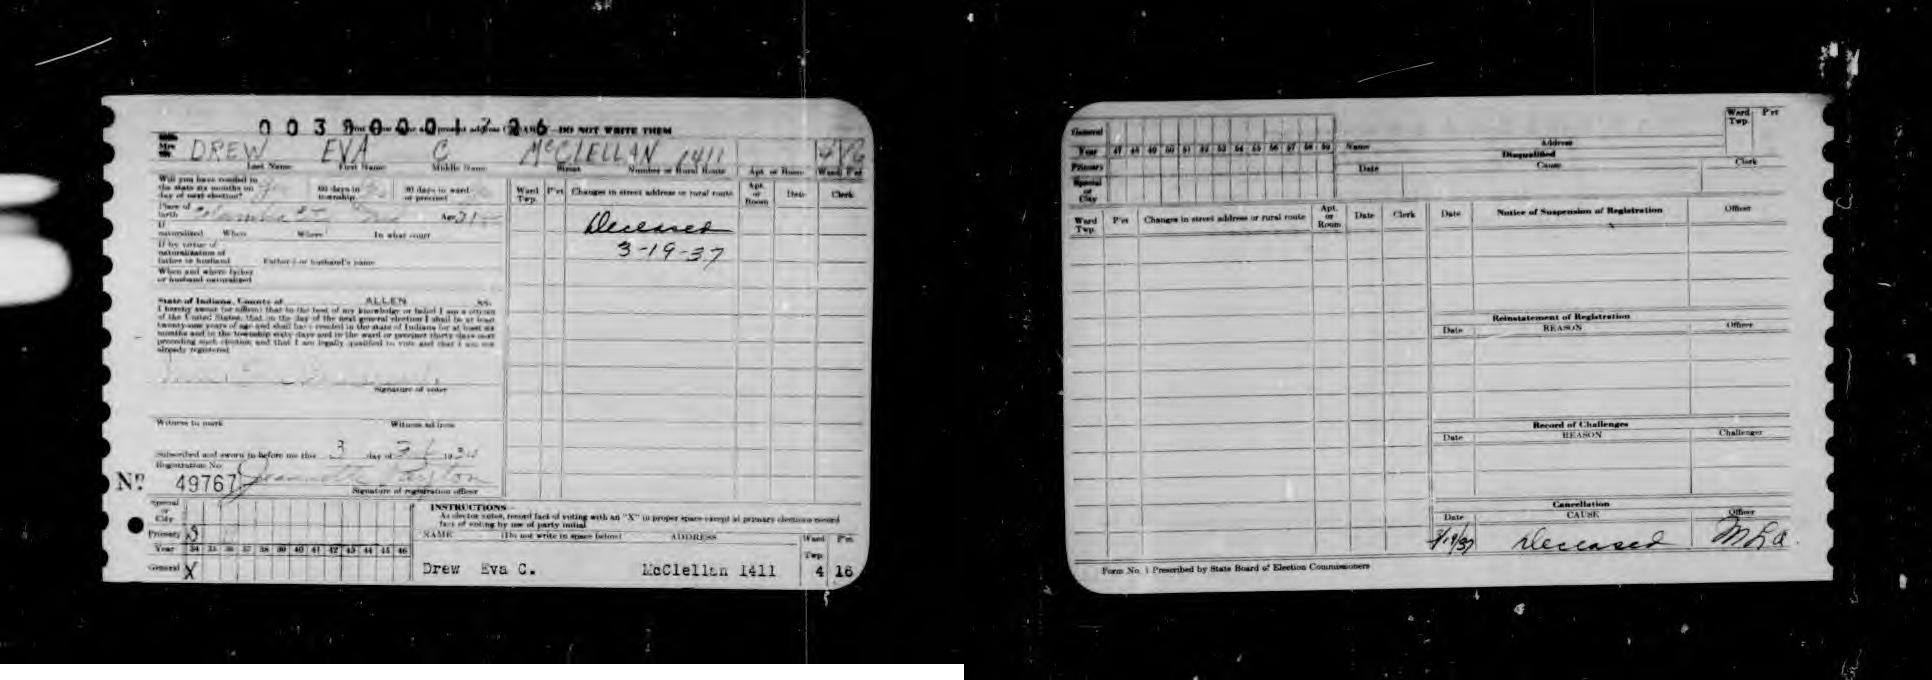 003900001726
DO NOT WRITE THEM
DREW EVA C McCLELLAN 1411 4 16
Last Name First Name Middle Name Street Number or Rural Route Apt. or Room Ward P'ct
Will you have resided in
the state six months on 60 days in 30 days in ward
day of next election? township or precinct
Place of
birth Age
If
naturalized When Where In what court
If by virtue of
naturalization of
father or husband Father's or husband's name
When and where father
or husband naturalized
State of Indiana, County of ALLEN SS.
I hereby swear (or affirm) that to the best of my knowledge or belief I am a citizen
of the United States, that on the day of the next general election I shall be at least
twenty-one years of age and shall have resided in the state of Indiana for at least six
months and in the township sixty days and in the ward or precinct thirty days next
preceding such election and that I am legally qualified to vote and that I am not
already registered.
Signature of voter
Witness to mark Witness address
Subscribed and sworn to before me this 3 day of 19
Registration No.
No 49767
Signature of registration officer
Ward Twp. P'ct Changes in street address or rural route Apt. or Room Date Clerk
Deceased
3-19-37
Special
or
City
Primary
Year 34 35 36 37 38 39 40 41 42 43 44 45 46
General X
INSTRUCTIONS
As elector votes, record fact of voting with an "X" in proper space except at primary elections record
fact of voting by use of party initial
NAME (Do not write in space below) ADDRESS Ward Twp P'ct
Drew Eva C. McClellan 1411 4 16
General
Year 47 48 49 50 51 52 53 54 55 56 57 58 59
Primary
Special
or
City
Name Address Ward Twp. P'ct
Disqualified
Date Cause Clerk
Ward Twp. P'ct Changes in street address or rural route Apt. or Room Date Clerk
Date Notice of Suspension of Registration Officer
Reinstatement of Registration
Date REASON Officer
Record of Challenges
Date REASON Challenger
Cancellation
Date CAUSE Officer
3/19/37 Deceased
Form No. 1 Prescribed by State Board of Election Commissioners